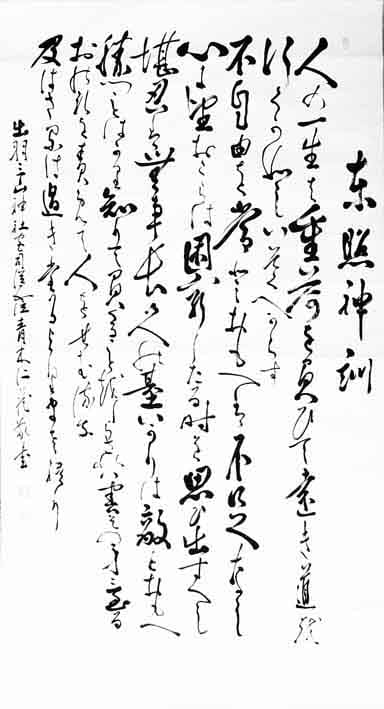 東照神訓
人の一生は重荷を負ひて遠き道を
行くか如しいそくへからす
不自由を常とおもへは不足なし
心に望おこらは困窮したる時を思ひ出すへし
堪忍は無事長久の基いかりは敵とおもへ
勝事はかり知りて負くる事を知らされは害其の身に至る
おのれを責めて人をせむるな
及はさるは過きたるよりまされり
出羽三山神社宮司 青木 仁